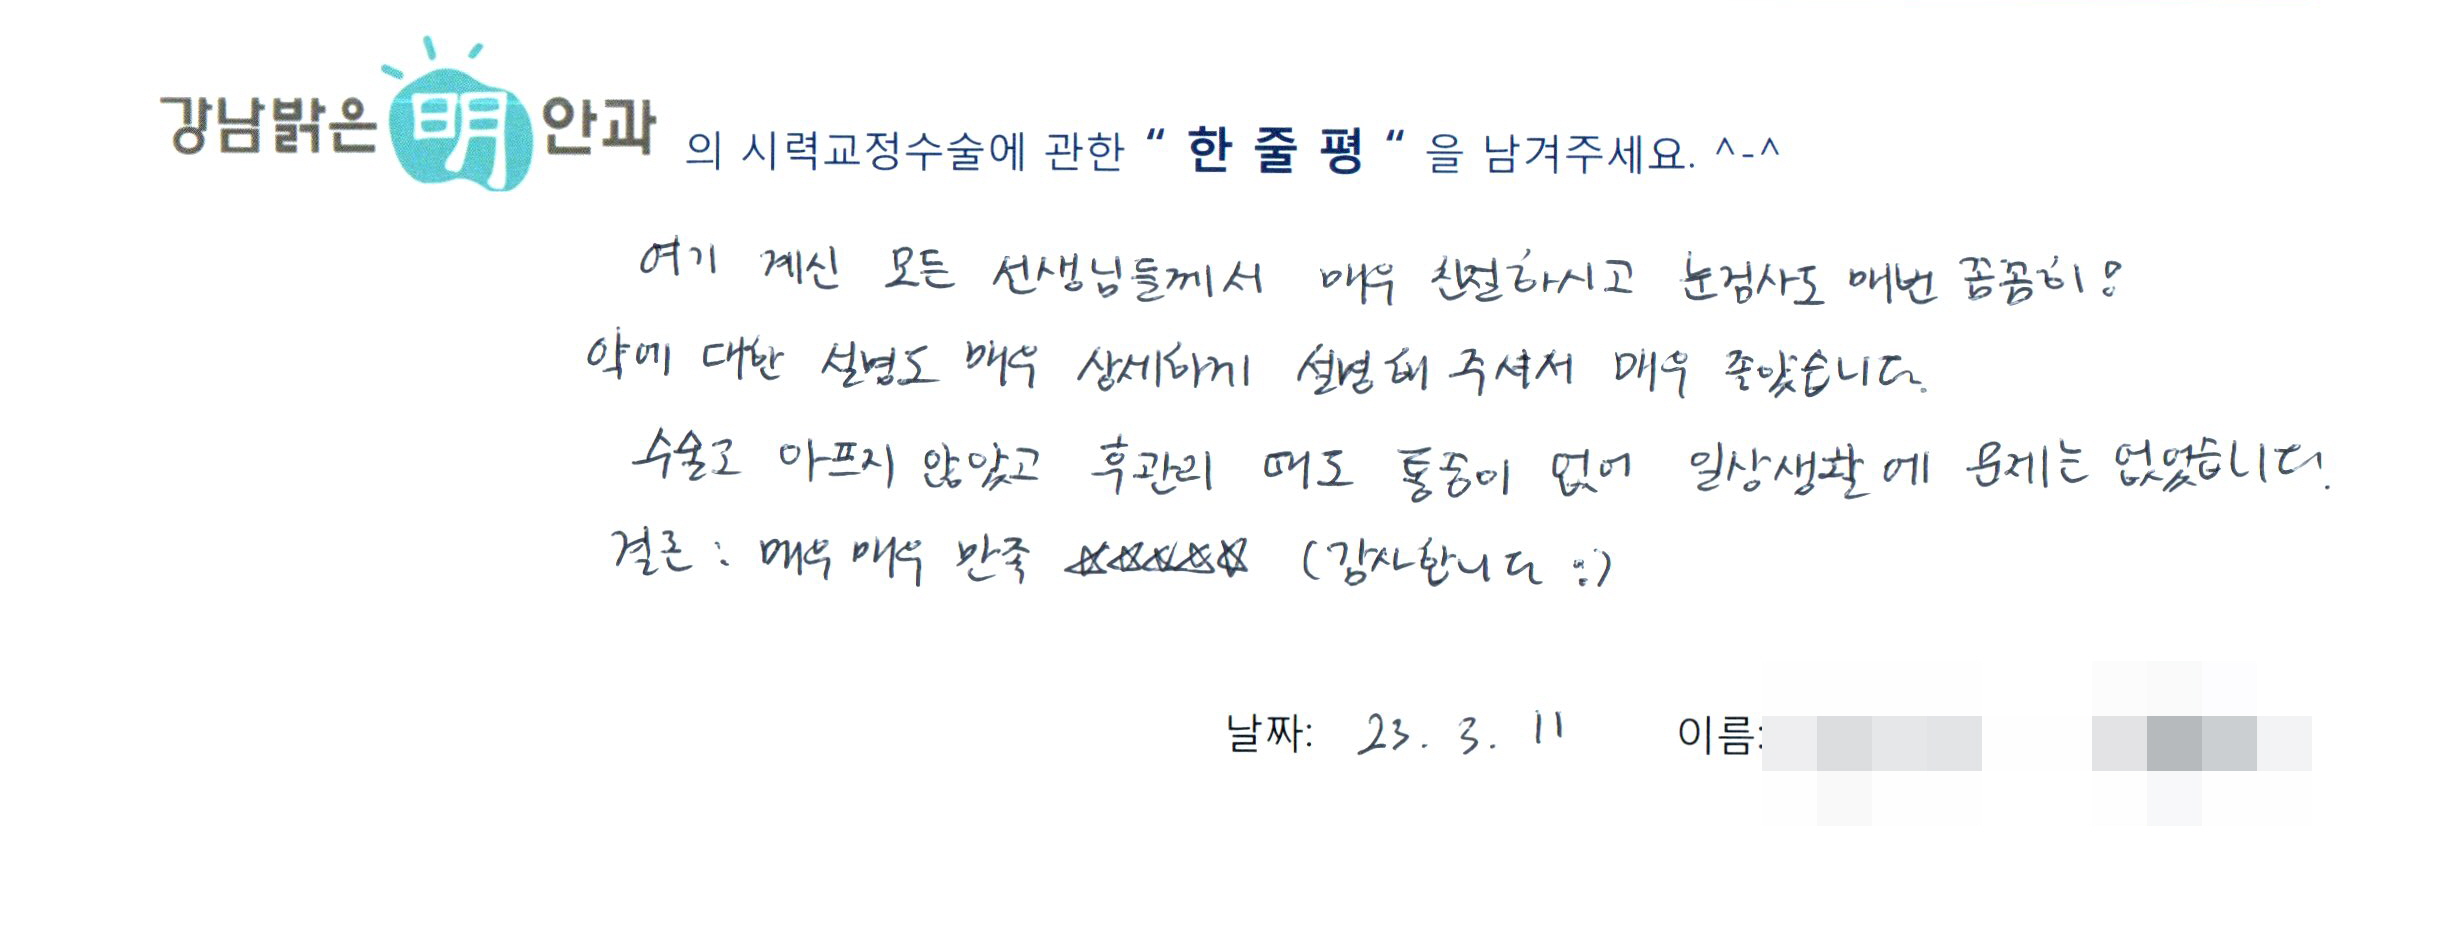 강남밝은明안과 의 시력교정수술에 관한 “ 한 줄 평 “ 을 남겨주세요. ^-^
여기 계신 모든 선생님들께서 매우 친절하시고 눈검사도 매번 꼼꼼히!
약에 대한 설명도 매우 상세하게 설명해 주셔서 매우 좋았습니다.
수술도 아프지 않았고 후관리 때도 통증이 없어 일상생활에 문제는 없었습니다.
결론 : 매우 매우 만족 ☆☆☆☆☆ (감사합니다 :)
날짜: 23. 3. 11 이름: